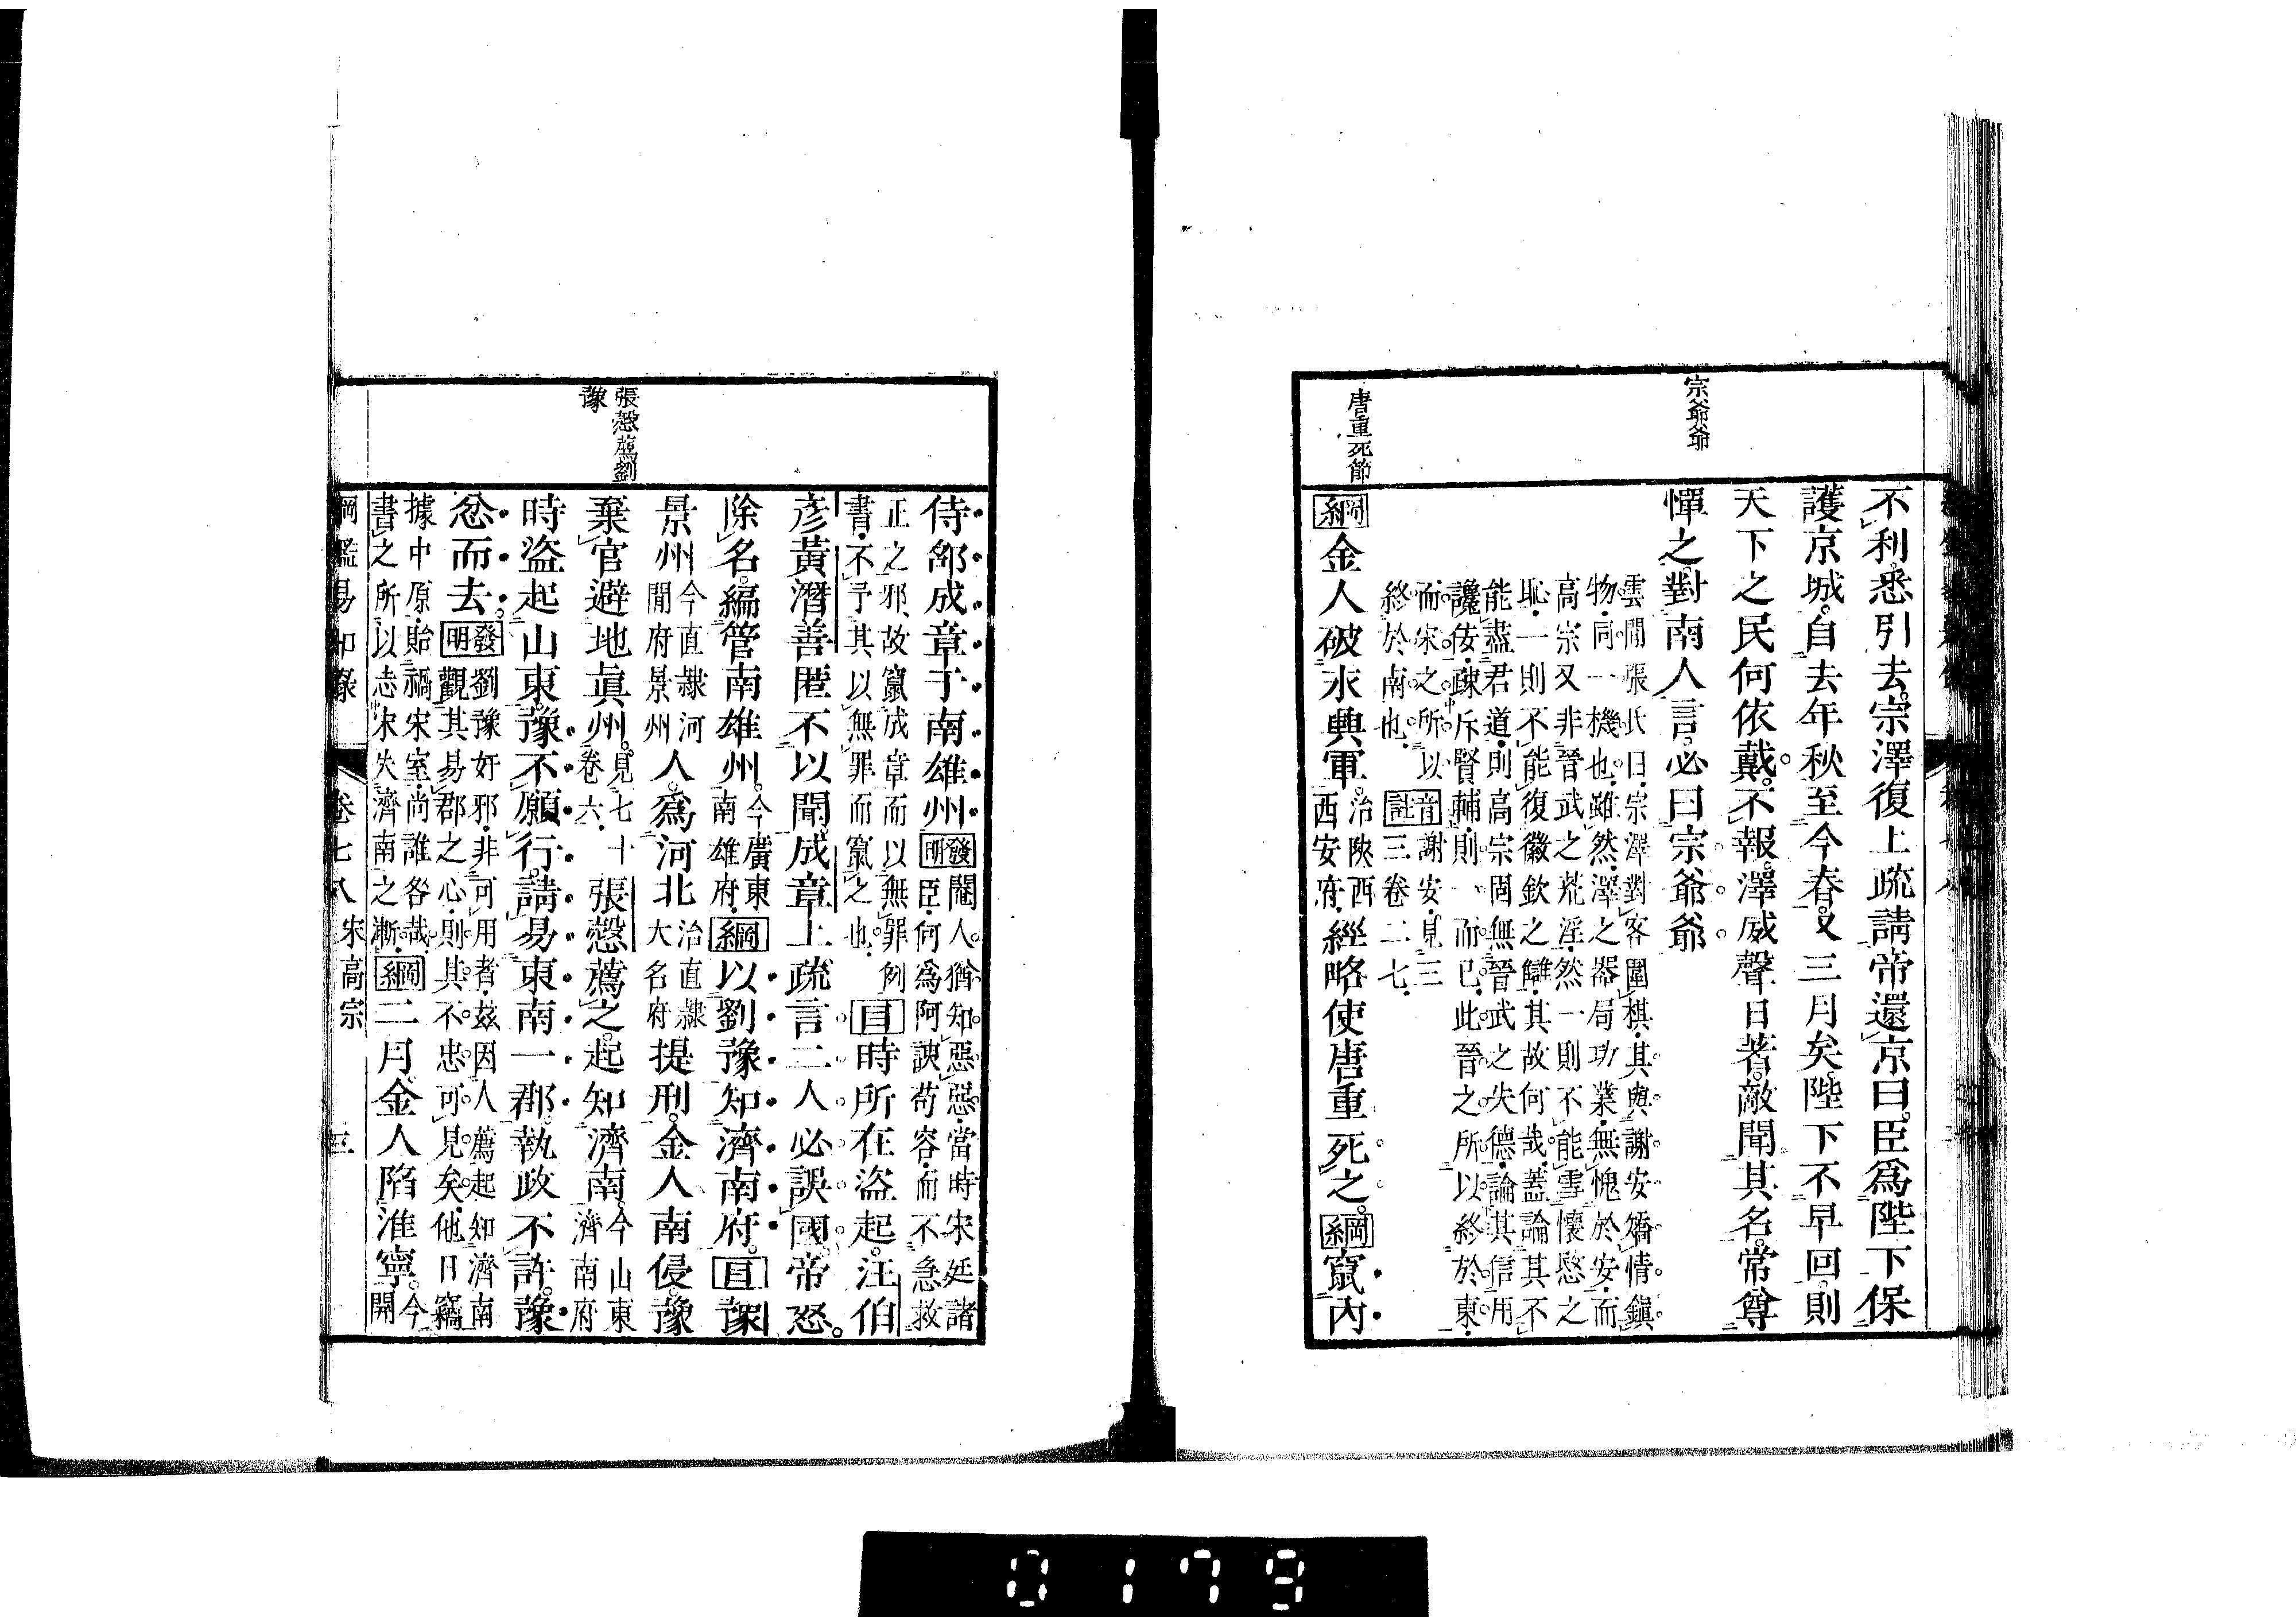 宗爺爺
唐重死節
不利悉引去宗澤復上疏請帝還京曰臣爲陛下保
護京城自去年秋至今春又三月矣陛下不早回則
天下之民何依戴不報澤威聲日著敵聞其名常尊
憚之對南人言必曰宗爺爺
雲間張氏曰宗澤對客圍棋其與謝安矯情鎭
物同一機也雖然澤之器局功業無愧於安而
高宗又非晉武之荒淫然一則不能雪懷愍之
恥一則不能復徽欽之讎其故何哉蓋論其不
能盡君道則高宗固無晉武之失德論其信用
讒佞疎斥賢輔則一而已此晉之所以終於東
而宋之所以
終於南也
音謝安見三
註三卷二七
綱金人破永興軍
治陝西
西安府
經略使唐重死之綱竄內
張慤薦劉
豫
侍邵成章于南雄州
發閹人猶知惡惡當時宋廷諸
明臣何爲阿諛苟容而不急救
正之邪故竄成章而以無罪例
書不予其以無罪而竄之也
目時所在盜起汪伯
彥黃潛善匿不以聞成章上疏言二人必誤國帝怒
除名編管南雄州
今廣東
南雄府
綱以劉豫知濟南府目豫
景州
今直隸河
閒府景州
人爲河北
治直隸
大名府
提刑金人南侵豫
棄官避地眞州
見七十
卷六
張慤薦之起知濟南
今山東
濟南府
時盜起山東豫不願行請易東南一郡執政不許豫
忿而去
發劉豫奸邪非可用者玆因人薦起知濟南
明觀其易郡之心則其不忠可見矣他日竊
據中原貽禍宋室尚誰咎哉
書之所以志宋失濟南之漸
綱二月金人陷淮寧
今
開
綱鑑易知錄 卷七八 宋高宗 三
0179